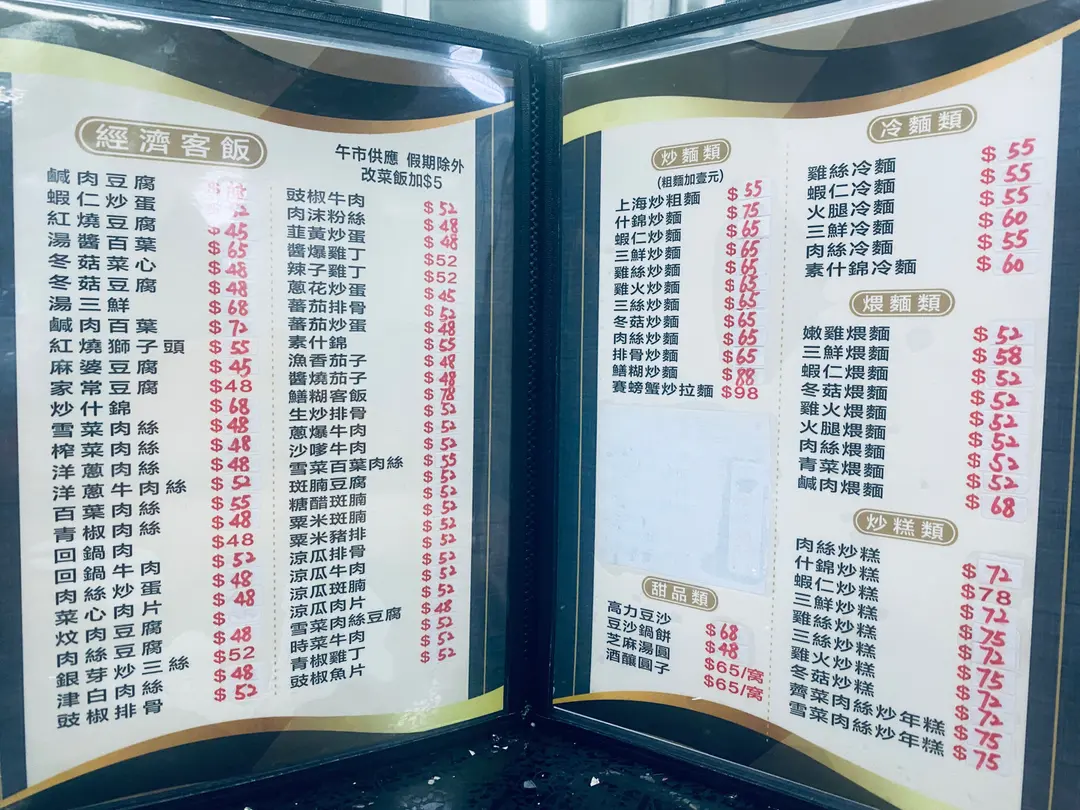 經濟客飯
午市供應 假期除外
改菜飯加$5
鹹肉豆腐
蝦仁炒蛋
紅燒豆腐 $45
湯醬百葉 $65
冬菇菜心 $48
冬菇豆腐 $48
湯三鮮 $68
鹹肉百葉 $72
紅燒獅子頭 $55
麻婆豆腐 $45
家常豆腐 $48
炒什錦 $68
雪菜肉絲 $48
榨菜肉絲 $48
洋蔥肉絲 $48
洋蔥牛肉絲 $52
百葉肉絲 $55
青椒肉絲 $48
回鍋肉 $48
回鍋牛肉 $52
肉絲炒蛋 $48
菜心肉片 $48
炆肉豆腐 $
肉絲豆腐 $48
銀芽炒三絲 $52
津白肉絲 $48
豉椒排骨 $52
豉椒牛肉 $52
肉沫粉絲 $48
韮黃炒蛋 $48
醬爆雞丁 $52
辣子雞丁 $52
蔥花炒蛋 $45
蕃茄排骨 $52
蕃茄炒蛋 $48
素什錦 $55
漁香茄子 $48
醬燒茄子 $48
鱔糊客飯 $78
生炒排骨 $52
蔥爆牛肉 $52
沙嗲牛肉 $52
雪菜百葉肉絲 $55
斑腩豆腐 $52
糖醋斑腩 $52
粟米斑腩 $52
粟米豬排 $52
涼瓜排骨 $52
涼瓜牛肉 $52
涼瓜斑腩 $52
涼瓜肉片 $52
雪菜肉絲豆腐 $48
時菜牛肉 $52
青椒雞丁 $52
豉椒魚片 $52
炒麵類
(粗麵加壹元)
上海炒粗麵 $55
什錦炒麵 $75
蝦仁炒麵 $65
三鮮炒麵 $65
雞絲炒麵 $65
雞火炒麵 $65
三絲炒麵 $65
冬菇炒麵 $65
肉絲炒麵 $65
排骨炒麵 $65
鱔糊炒麵 $88
賽螃蟹炒拉麵 $98
甜品類
高力豆沙 $68
豆沙鍋餅 $48
芝麻湯圓 $65/窩
酒釀圓子 $65/窩
冷麵類
雞絲冷麵 $55
蝦仁冷麵 $55
火腿冷麵 $55
三鮮冷麵 $60
肉絲冷麵 $55
素什錦冷麵 $60
煨麵類
嫩雞煨麵 $52
三鮮煨麵 $58
蝦仁煨麵 $52
冬菇煨麵 $52
雞火煨麵 $52
火腿煨麵 $52
肉絲煨麵 $52
青菜煨麵 $52
鹹肉煨麵 $68
炒糕類
肉絲炒糕 $72
什錦炒糕 $78
蝦仁炒糕 $72
三鮮炒糕 $75
雞絲炒糕 $72
三絲炒糕 $75
雞火炒糕 $72
冬菇炒糕 $72
薺菜肉絲炒年糕 $75
雪菜肉絲炒年糕 $75